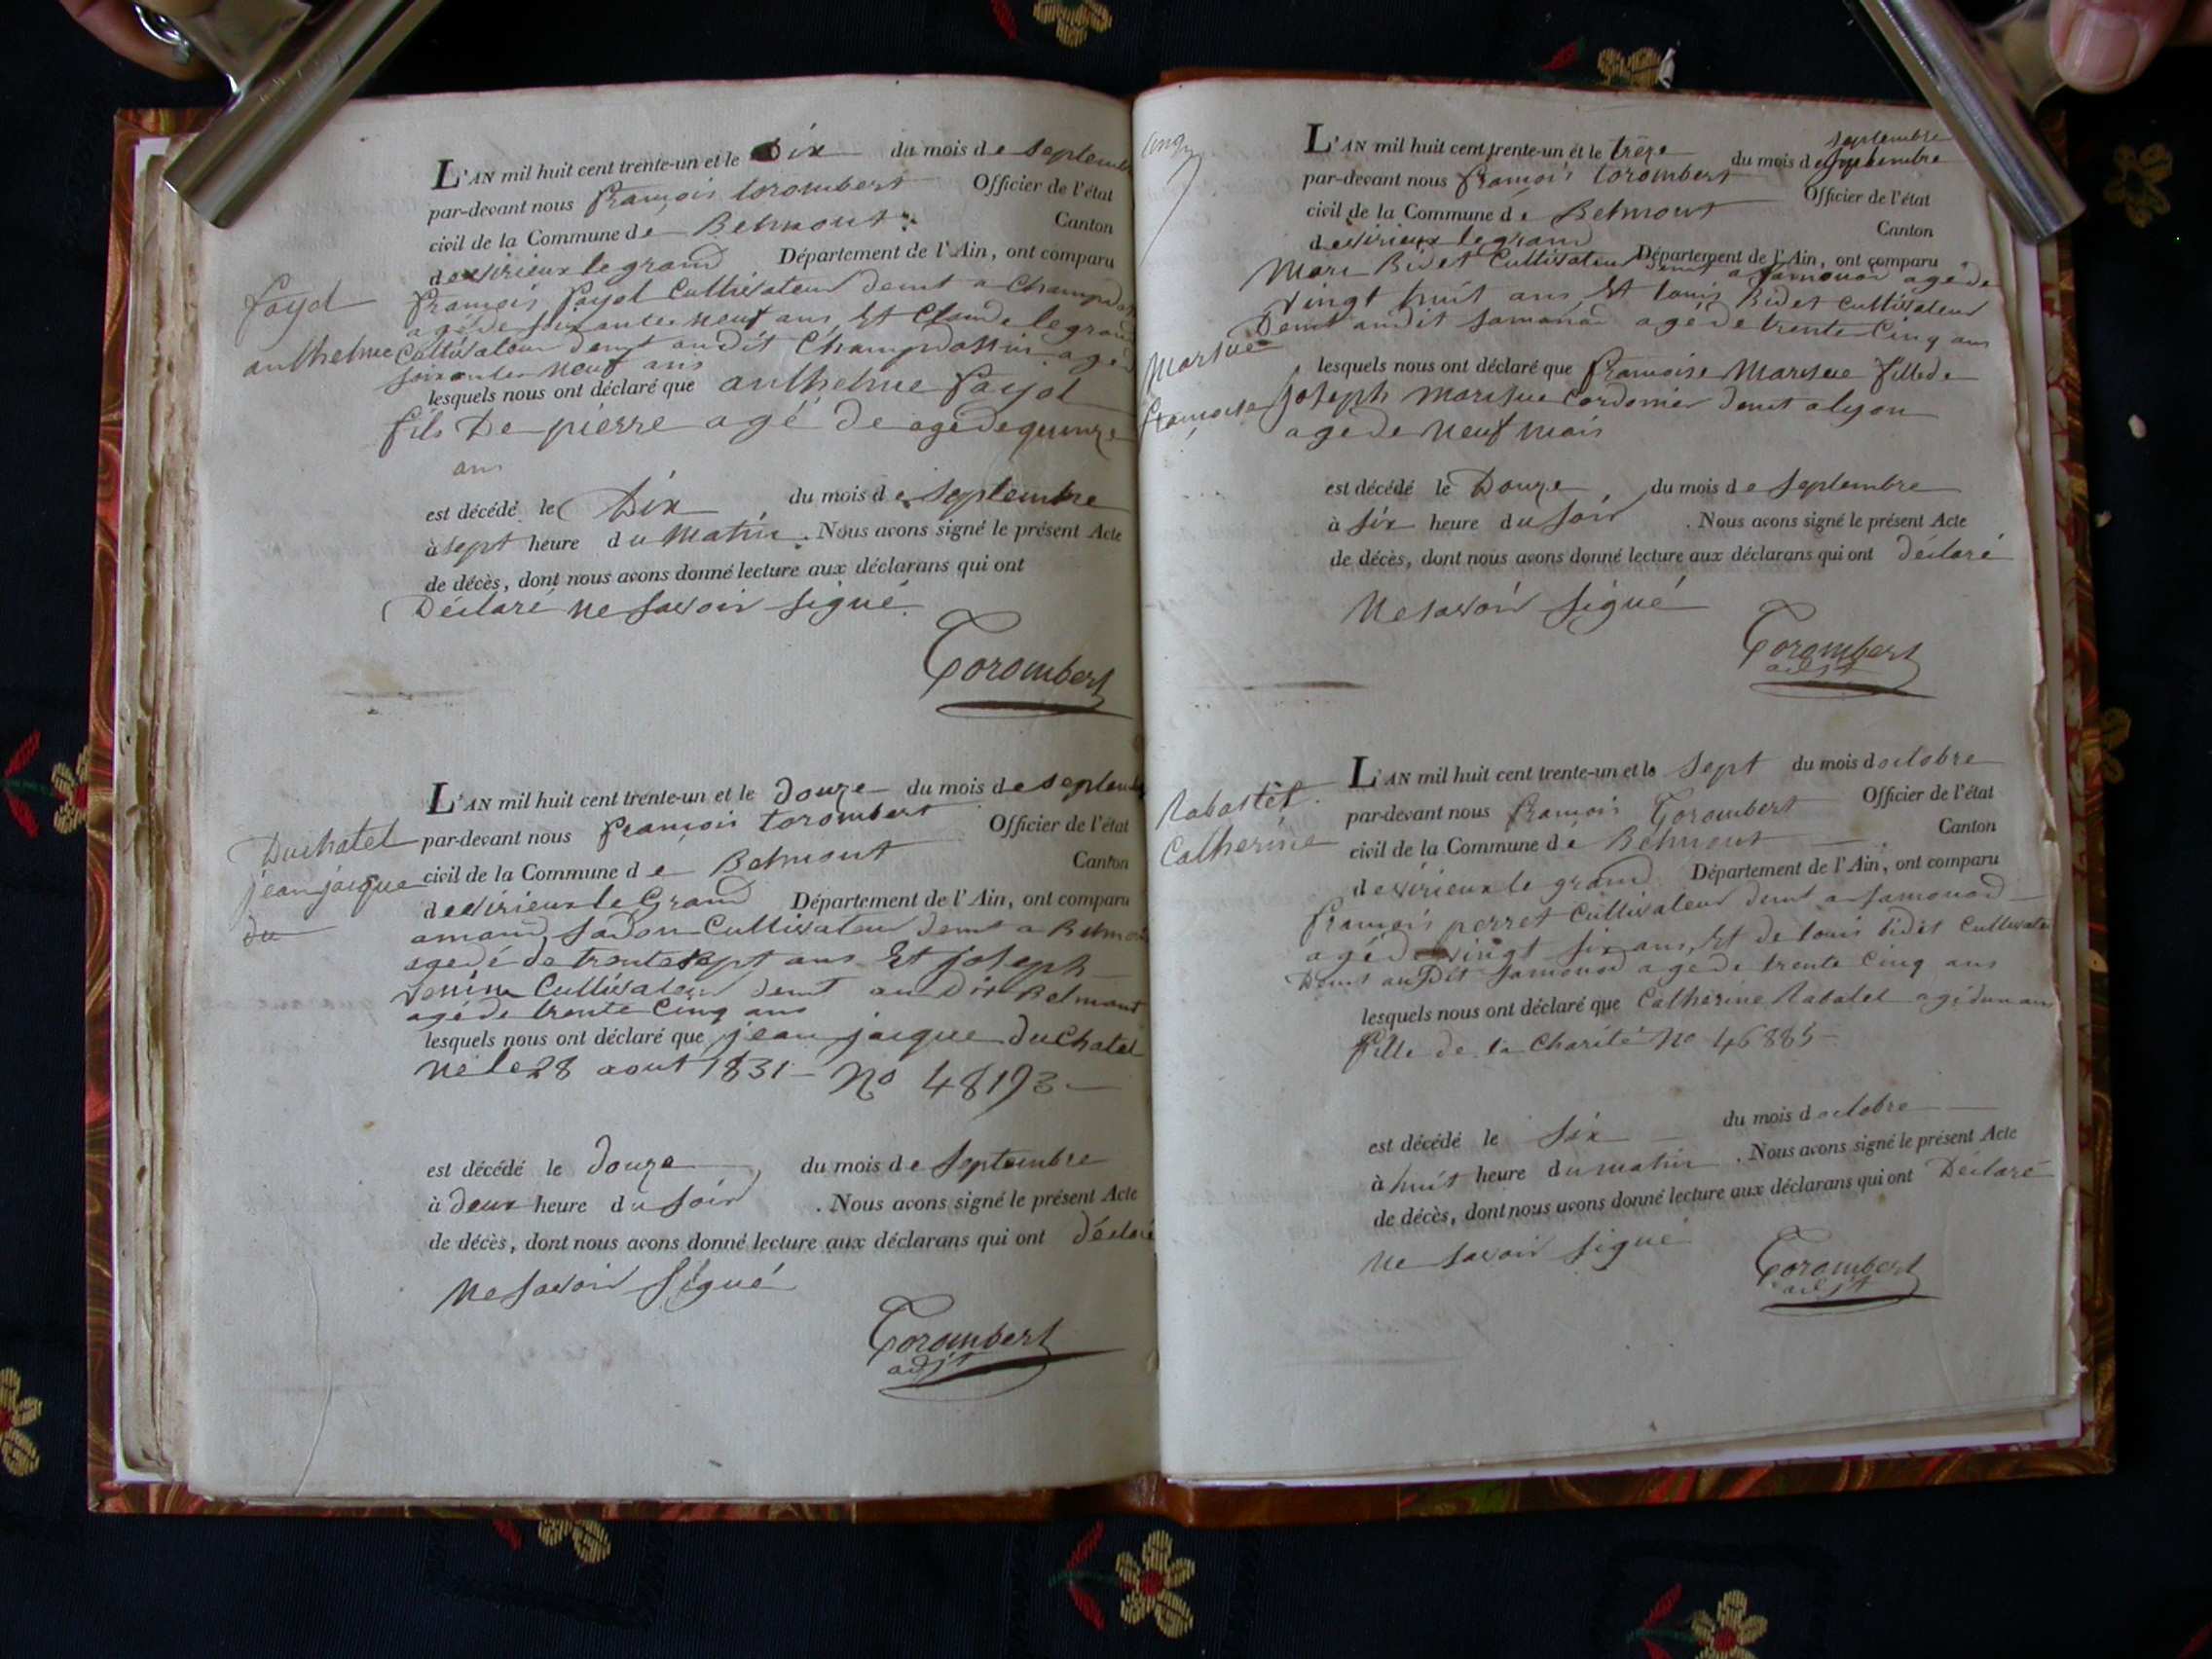 L'AN mil huit cent trente-un et le Dix du mois de Septembre
par-devant nous françois torombert Officier de l'état
civil de la Commune de Belmont Canton
devirieux le grand Département de l'Ain, ont comparu
fayol
françois fayol Cultivateur demt a Champdossin
agé de soixante neuf ans Et Claude legrand
anthelme
Cultivateur demt audit Champdossin agé
soixante neuf ans
lesquels nous ont déclaré que anthelme fayol
fils De pierre agé de agé de quinze
ans
est décédé le Dix du mois de Septembre
à sept heure du matin. Nous avons signé le présent Acte
de décès, dont nous avons donné lecture aux déclarans qui ont
Déclaré ne savoir signé.
Torombert
L'AN mil huit cent trente-un et le douze du mois de septembre
Duchatel
par-devant nous françois torombert Officier de l'état
jean jacque
civil de la Commune de Belmont Canton
du
devirieux le Grand Département de l'Ain, ont comparu
amand Cultivateur demt a Belmont
agedé de trente sept ans Et joseph
Cultivateur demt au Dit Belmont
agé de trente Cinq ans
lesquels nous ont déclaré que jean jacque duChatel
né le 28 aout 1831 - No 48193
est décédé le douze du mois de Septembre
à deux heure du soir. Nous avons signé le présent Acte
de décès, dont nous avons donné lecture aux déclarans qui ont déclaré
Ne savoir Signé
Torombert
adjt
L'AN mil huit cent trente-un et le trèze du mois de septembre
septembre
par-devant nous françois torombert Officier de l'état
civil de la Commune de Belmont Canton
devirieux le grand Département de l'Ain, ont comparu
Marc Bidet Cultivateur demt a samonod agé de
vingt huit ans Et louis Bidet cultivateur
Demt audit samonod agé de trente Cinq ans
françoise
lesquels nous ont déclaré que françoise fille de
joseph Cordonier demt a lyon
agé de neuf mois
est décédé le Douze du mois de Septembre
à six heure du soir. Nous avons signé le présent Acte
de décès, dont nous avons donné lecture aux déclarans qui ont déclaré
Ne savoir signé
Torombert
adjt
L'AN mil huit cent trente-un et le sept du mois doctobre
Rabastet
par-devant nous françois Torombert Officier de l'état
Catherine
civil de la Commune de Belmont Canton
devirieux le grand Département de l'Ain, ont comparu
françois perret Cultivateur demt a samonod
agé de vingt six ans, Et de louis bidet Cultivate
Demt au Dit Samonod agé de trente Cinq ans
lesquels nous ont déclaré que Catherine Rabatel agé dun ans
fille de la Charité No 46885
est décédé le six du mois doctobre
à huit heure du matin. Nous avons signé le présent Acte
de décès, dont nous avons donné lecture aux déclarans qui ont Déclaré
Ne savoir signé
Torombert
adjt